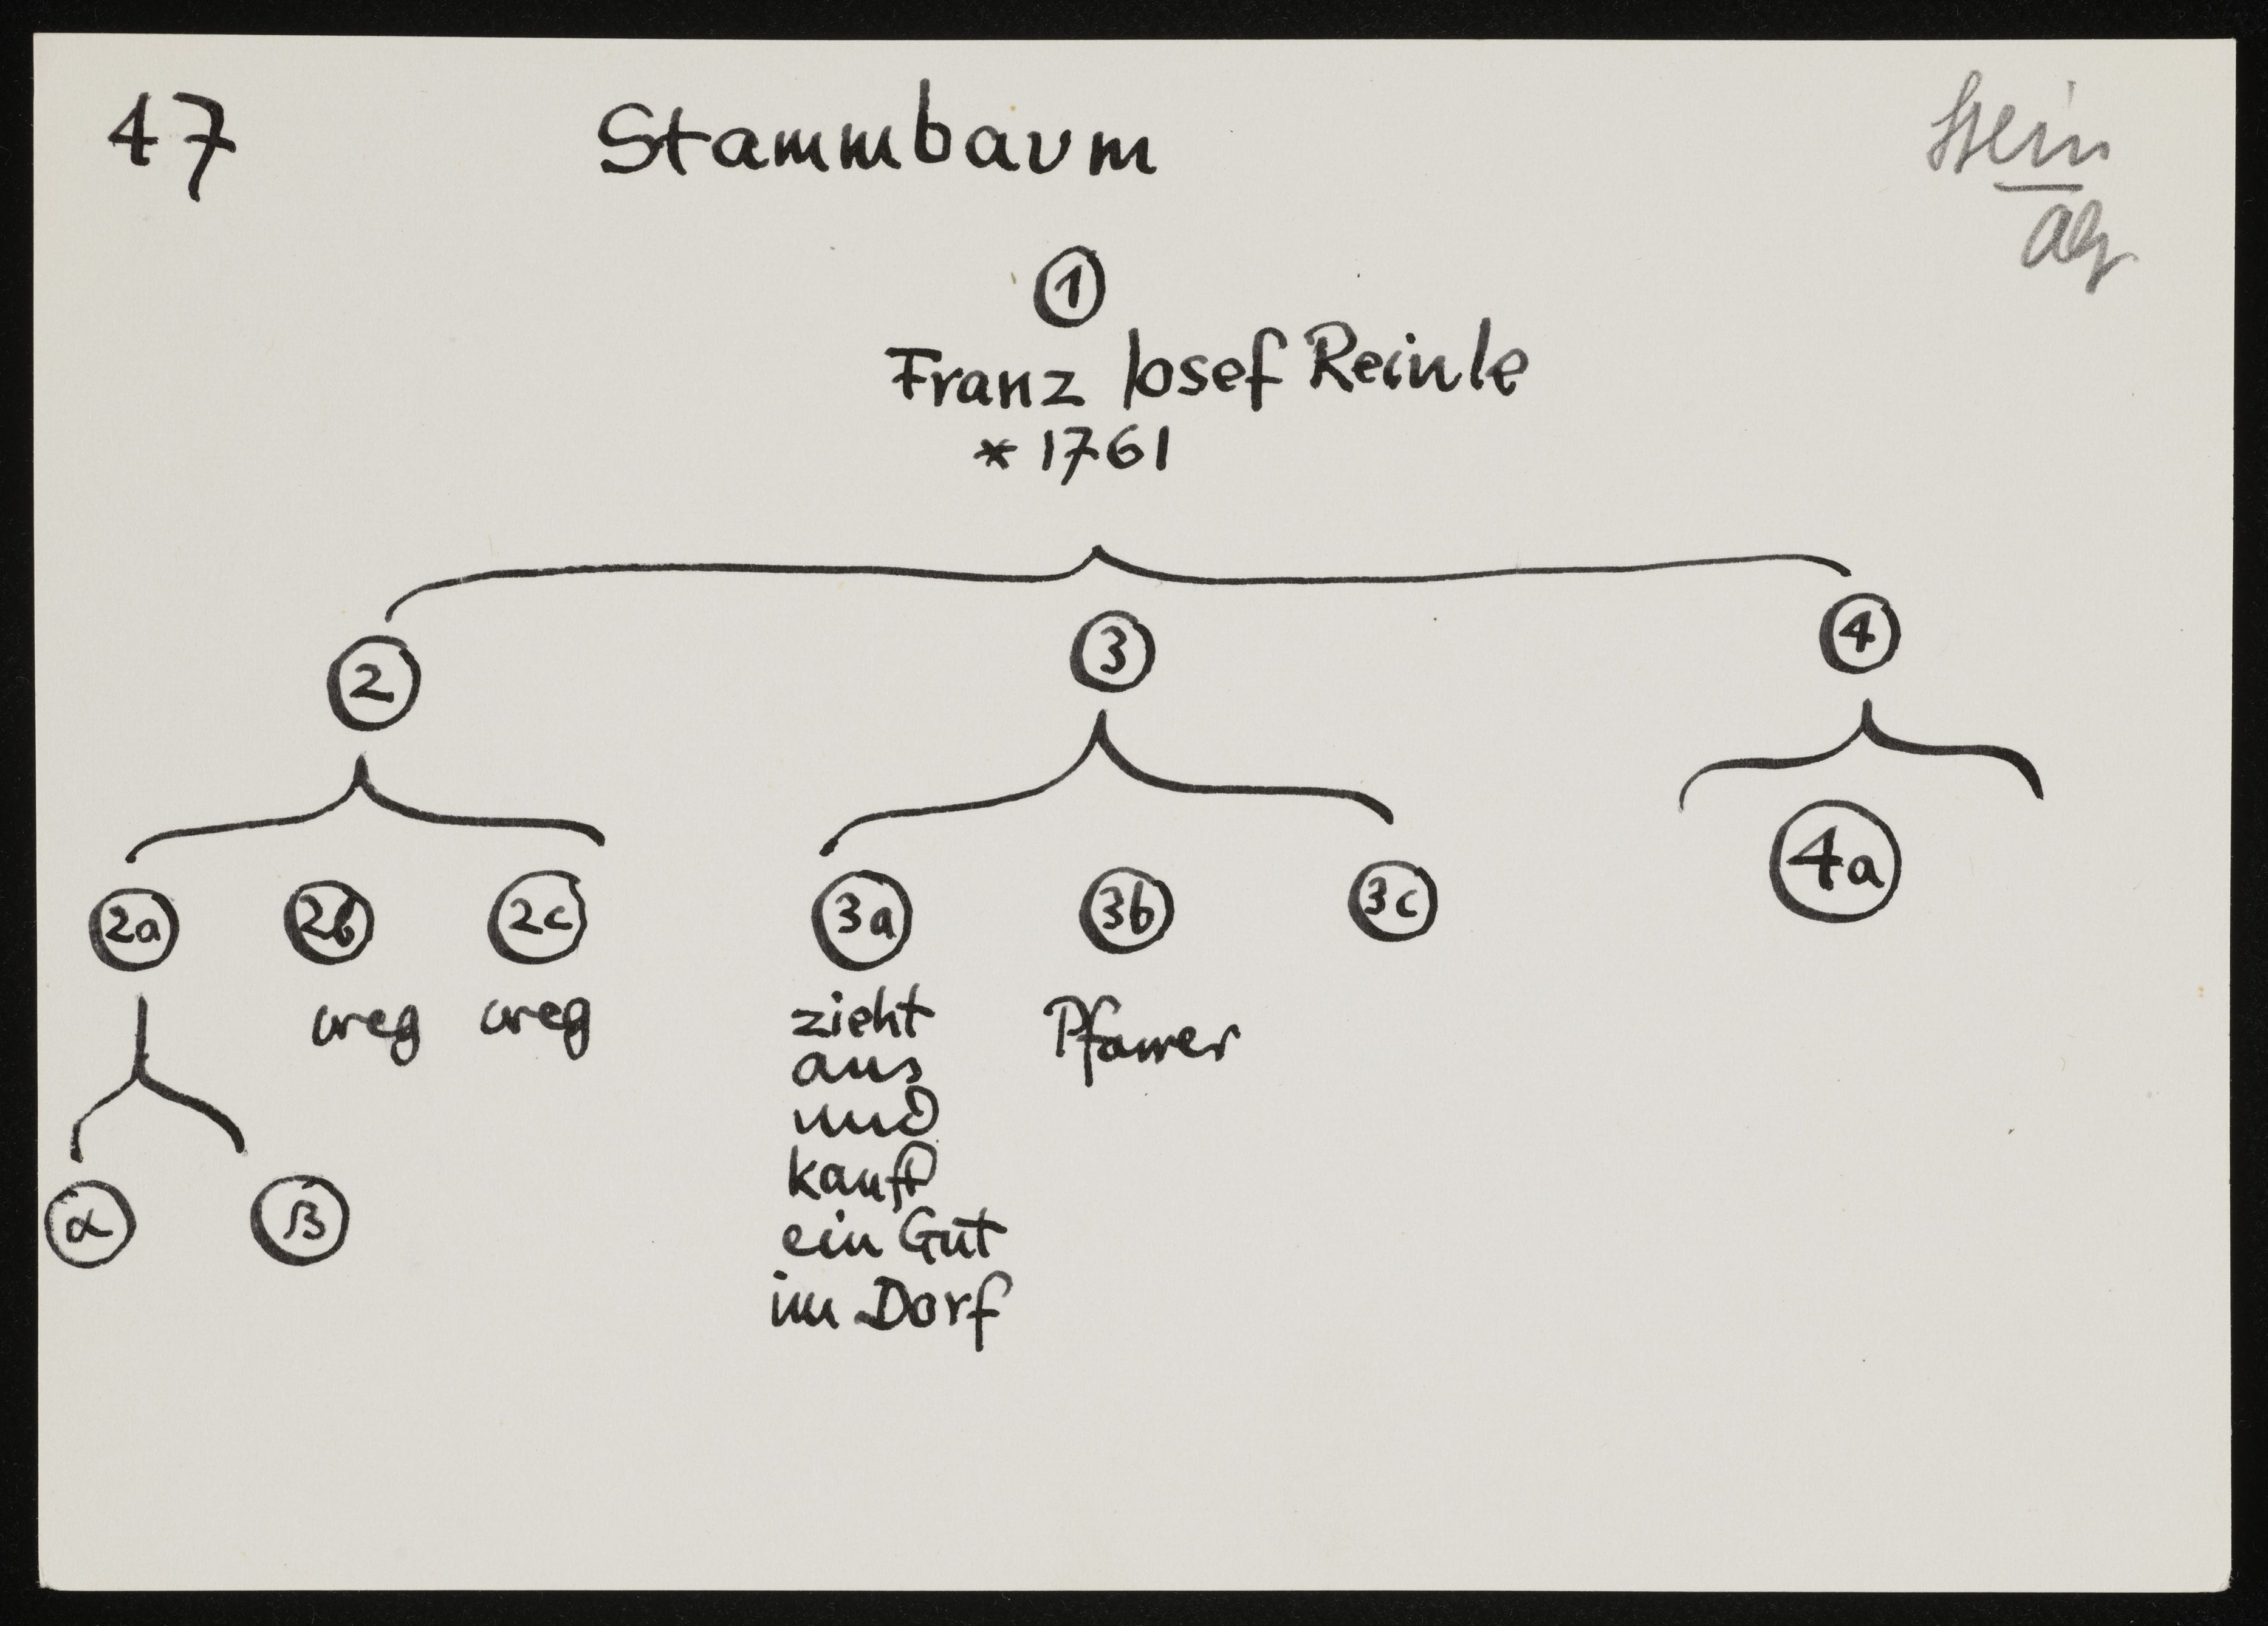 47 Stammbaum Stein
Ag
1
Franz Josef Reinle
* 1761
2 3 4
2a 2b 2c 3a 3b 3c 4a
weg weg zieht Pfarrer
aus
und
kauft
ein Gut
im Dorf
α β